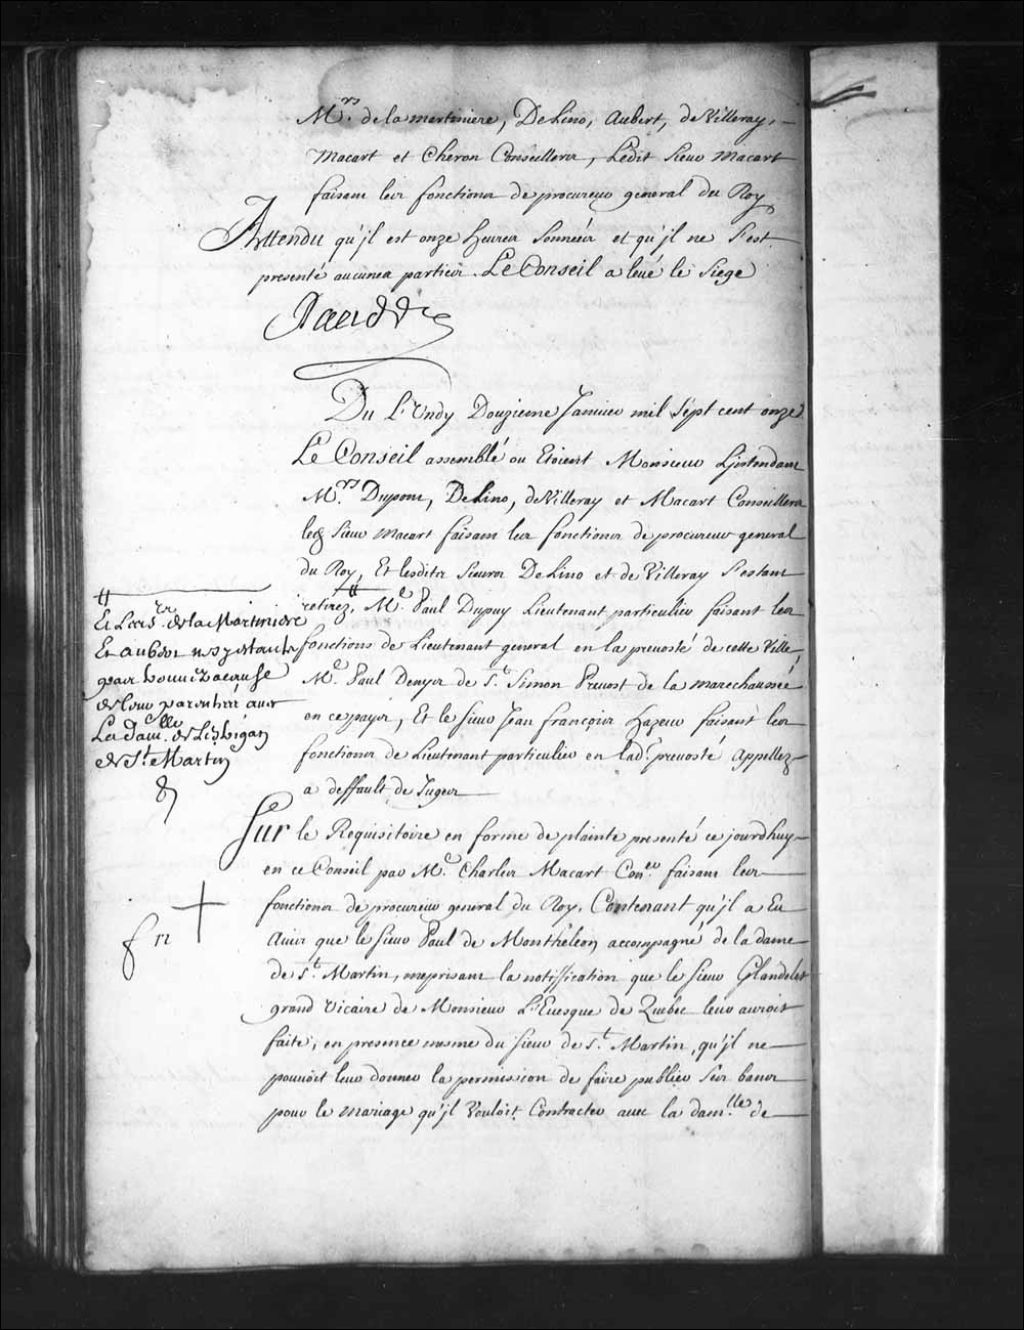 Mrs. de la martiniere, De Lino, Aubert, de Villeray,
Macart et Cheron Conseillers, Ledit Sieur Macart
faisant les fonctions de procureur general du Roy
Attendu qu'jl est onze heures sonnées et qu'jl ne s'est
presenté aucunes parties. Le Conseil a levé le Siege
Raudot
Du Lundy Douzieme Janvier mil sept cent onze
Le Conseil assemblé ou Etoient Monsieur L'jntendant
Mrs. Dupont, De Lino, de Villeray et Macart Conseillers
led. Sieur Macart faisant les fonctions de procureur general
du Roy, Et lesdits Sieurs De Lino et de Villeray s'estant
retirez, # Me. Paul Dupuy Lieutenant particulier faisant les
fonctions de Lieutenant general en la prevosté de cette Ville,
Me. Paul Denys de St. Simon Prevost de la mareschaussée
en ce pays, Et le sieur Jean françois Hazeur faisant les
fonctions de Lieutenant particulier en lad. prevosté Appellez
a deffault de Juges
# Et Les Srs. de la Martiniere
Et aubert
pour
de leur parentez avec
La dam.lle de
de St. Martin
Sur le Requisitoire en forme de plainte presenté ce jourdhuy
en ce Conseil par Me. Charles Macart Coner. faisant les
fonctions de procureur general du Roy, Contenant qu'jl a Eu
Avis que le sieur Paul de Monthéleon accompagné de la dame
de St. Martin, meprisant la notiffication que le sieur Glandelet
grand Vicaire de Monsieur L'Evesque de Quebec leur auroit
faite, en presence mesme du sieur de St. Martin, qu'jl ne
pouvoit leur donner la permission de faire publier ses bans
pour le mariage qu'jl Vouloit Contracter avec la dam.lle de